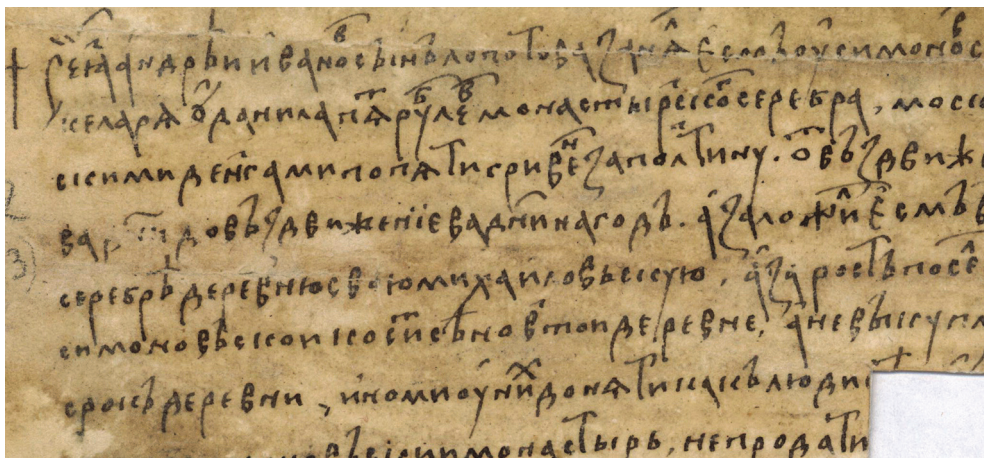 Се ꙗз андрѣи ивановъ сынъ лопотова занꙗл есмь оу симоновс
келарꙗ оу данила пꙗт рублев монастырского серебра, моско
скими денгами по пꙗти гривен за полтину. ѿ въздвиже
до въздвиженіева дни на годъ. а заложил есмь в
серебрѣ деревню свою михаиловьскую, а за рост
симоновьскои косити сѣно в тои деревне, а не выкупл
срокъ деревни, ино ми оу них донꙗти какъ люди
монастырь, не продати